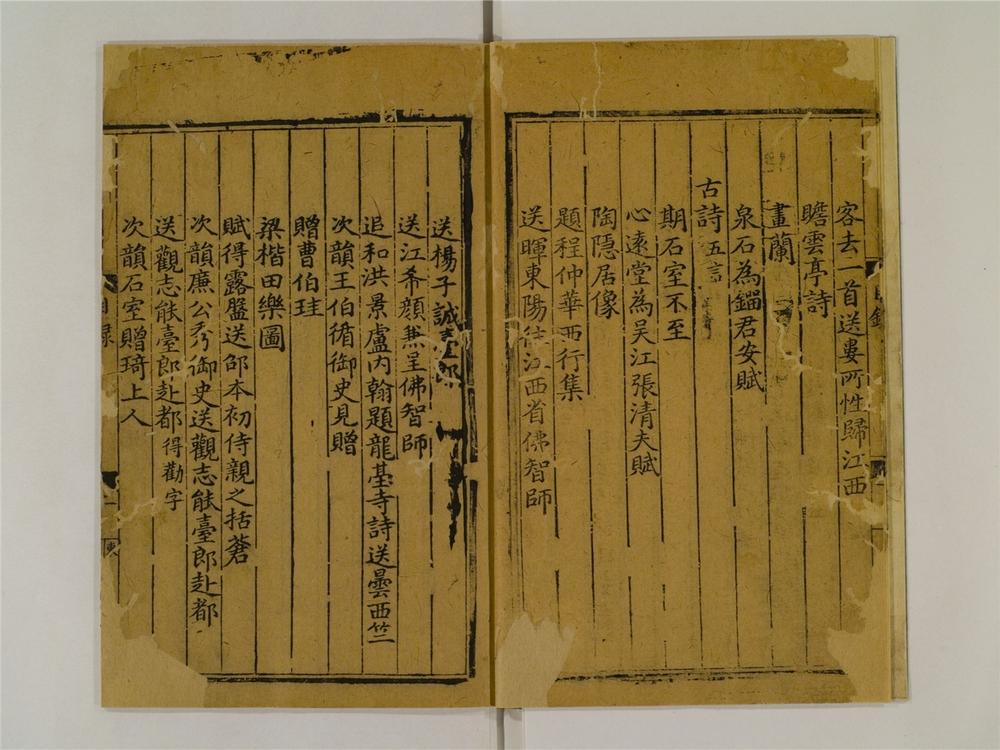 客去一首送婁所性歸江西
瞻雲亭詩
畫蘭
泉石為錙君安賦
古詩五言
期石室不至
心遠堂為吴江張清夫賦
陶隐居像
題程仲華西行集
送暉東陽往江西省佛智師
送楊子誠臺郎
送江希顔兼呈佛智師
追和洪景盧内翰題龍臺寺詩送曇西竺
次韻王伯循御史見贈
贈曹伯珪
梁楷田樂圖
賦得露盤送邵本初侍親之括蒼
次韻廉公亮御史送觀志能臺郎赴都
送觀志能臺郎赴都得勸字
次韻石室贈琦上人
目録